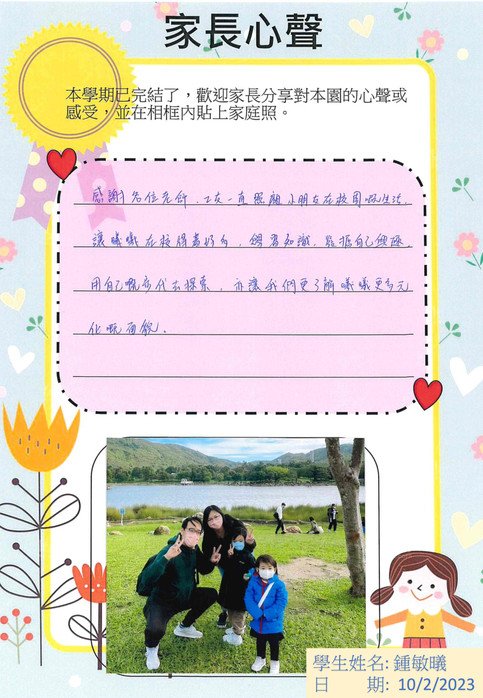 家長心聲
本學期已完結了，歡迎家長分享對本園的心聲或
感受，並在相框內貼上家庭照。
感謝各位老師、工友一直照顧小朋友在校園嘅生活,
讓曦曦在校得着好多,學習知識,能探自己興趣,
用自己嘅步伐去探索,亦讓我們更了解曦曦更多元
化嘅面貌.
學生姓名: 鍾敏曦
日 期: 10/2/2023